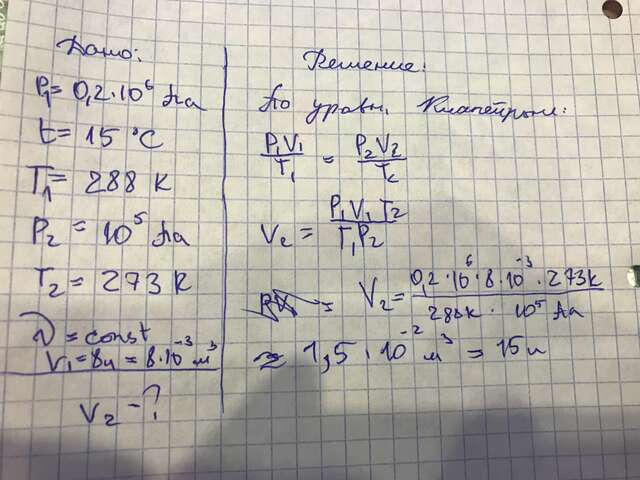 Дано:
P₁ = 0,2·10⁶ Па
t = 15 °C
T₁ = 288 K
P₂ = 10⁵ Па
T₂ = 273 K
ν = const
V₁ = 8л = 8·10⁻³ м³
V₂ - ?
Решение:
По уравн. Клапейрона:
P₁V₁/T₁ = P₂V₂/T₂
V₂ = P₁V₁T₂/T₁P₂
V₂ = 0,2·10⁶·8·10⁻³·273K/288K·10⁵ Па
≈ 1,5·10⁻² м³ = 15л